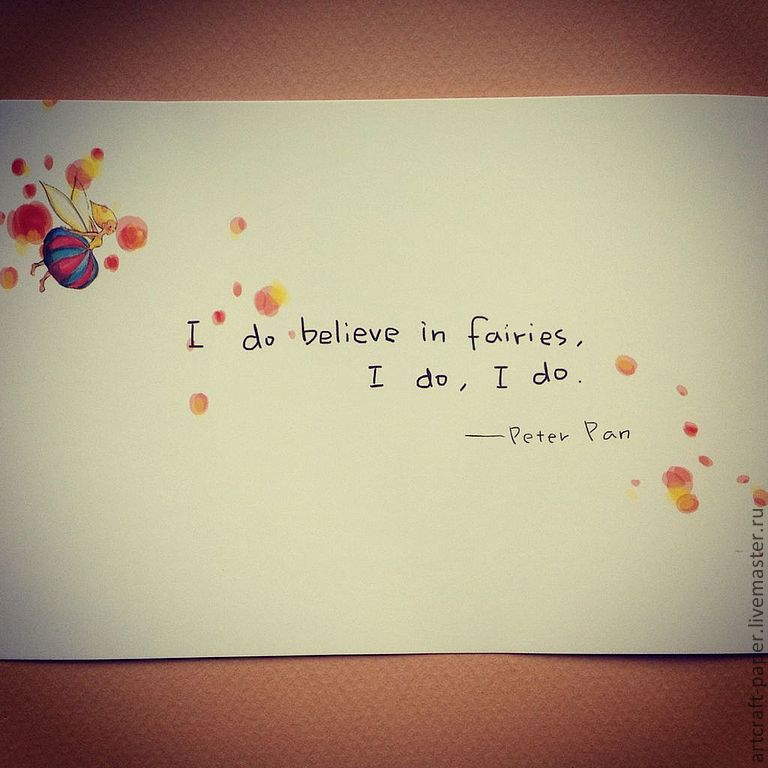 I do believe in fairies,
I do, I do.
—Peter Pan
artcraft-paper.livemaster.ru